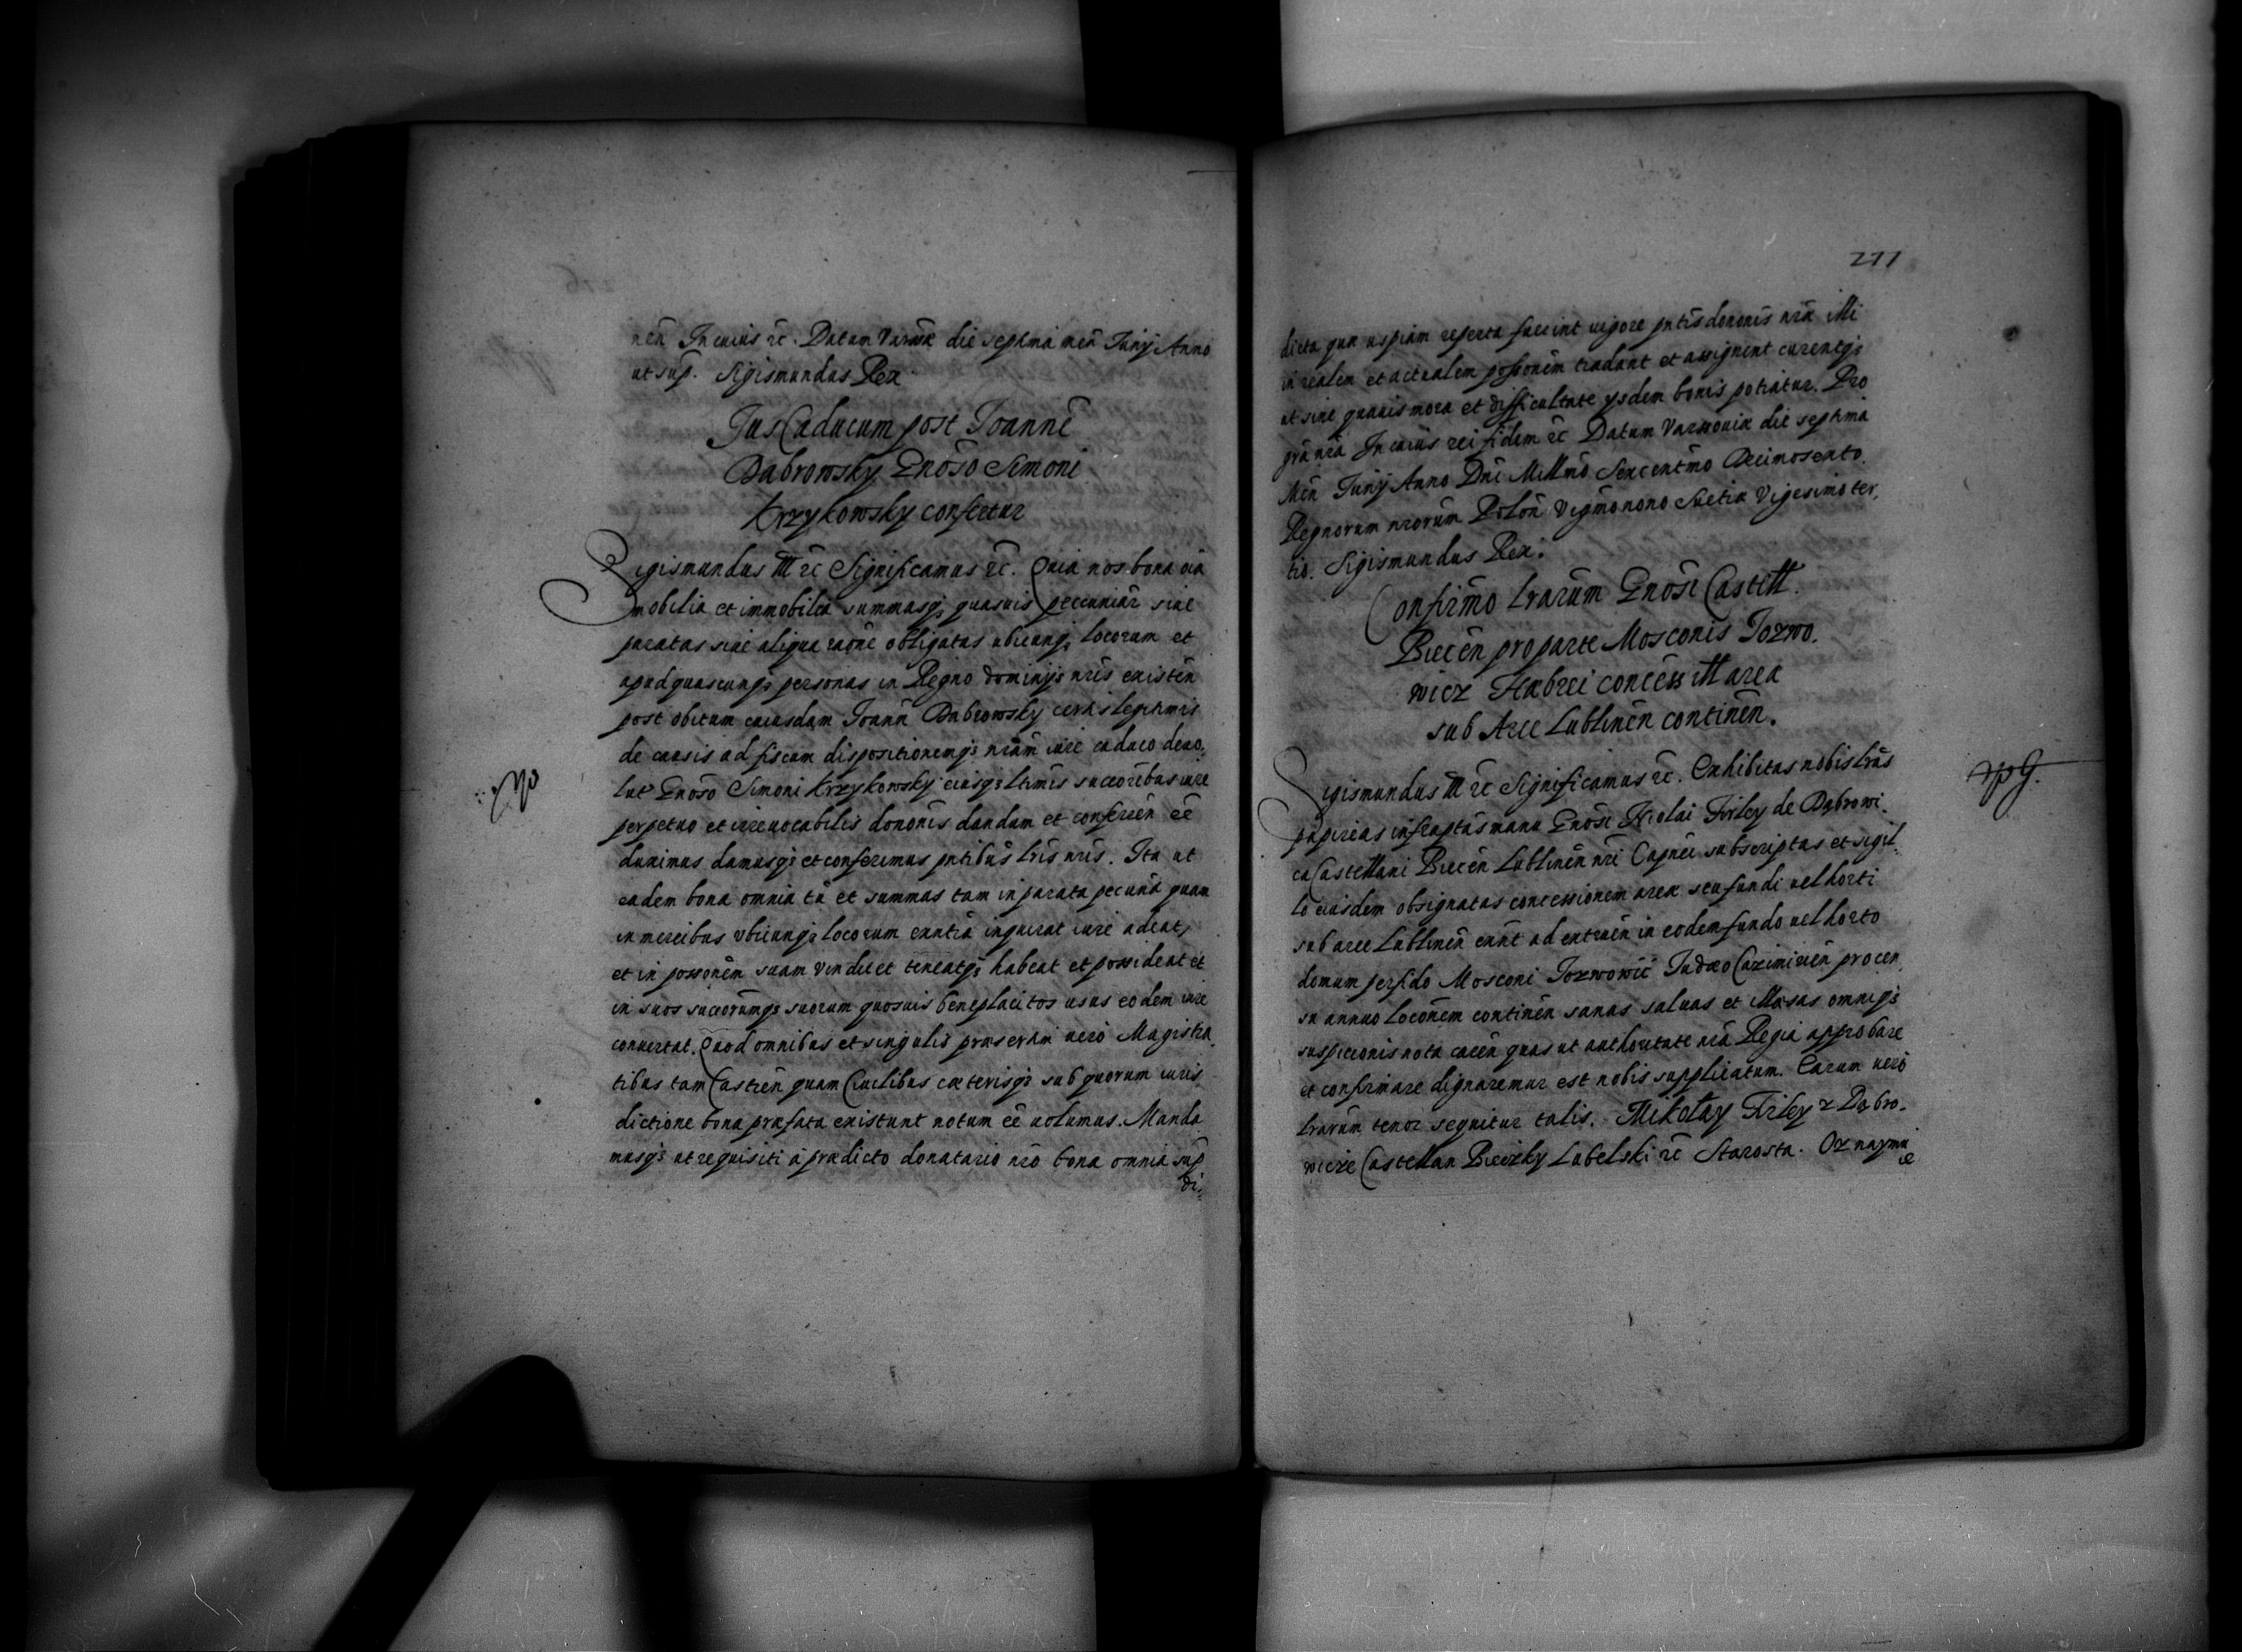 nēn In cuius rc. Datum Varsae die septima men Iunij Anno
ut sup. Sigismundus Rex
Jus Caducum post Joannē
Dabrowsky Gnōso Simoni
Krzykowsky confertur
Sigismundus III rc Significamus rc. Quia nos bona oīa
mobilia et immobilia summasq; quasuis pecuniar siue
paratas siue aliqua raōne obligatas ubicunq; locorum et
apud quascunq; personas in Regno dominijs nrīs existen
post obitum cuiusdam Joann Dabrowsky certis legitimis
de causis ad fiscum dispositionemq; nrām iure caduco deuo,
lut Gnōso Simoni Krzykowsky eiusq; ltimis succōribus iure
perpetuo et irreuocabilis donōnis dandam et conferēn ēē
duximus damusq; et conferimus pntibus lrīs nrīs. Ita ut
eadem bona omnia tā et summas tam in parata pecunia quam
in mercibus ubicunq; locorum exntia inquirat iure adeat,
et in possonēm suam vendicet teneatq; habeat et possideat et
in suos succōrumq; suorum quosuis beneplacitos usus eodem iure
conuertat. Quod omnibus et singulis praesertim uero Magistra,
tibus tam Castrēn quam Ciuilibus caeterisq; sub quorum iuris
dictione bona praefata existunt notum ēē uolumus. Manda
musq; ut requisiti à praedicto donatario nrō bona omnia sup,
di,
277
dicta quae uspiam reperta fuerint uigore pntīs donōnis nrae illi
in realem et actualem possonēm tradant et assignent curentq;
ut sine quauis mora et difficultate ysdem bonis potiatur. Pro
grā nrā In cuius rei fidem rc Datum Varsouiae die septima
Mēn Iunij Anno Dnī Millmō Sexcentmō Decimosexto.
Regnorum nrorum Polon Vigmōnono Suetiae Vigesimo ter,
tio. Sigismundus Rex.
Confirmō lrarum Gnōsi Castell.
Biecēn pro parte Mosconis Jozwo,
wicz Hebrei concess ill area
sub Arce Lublinēn continēn.
Sigismundus III rc Significamus rc. Exhibitas nobis lrās
papireas infraptas manu Gnōsi Nicolai Firley de Dąbrowi,
ca Castellani Biecēn Lublinēn nrī Capnei subscriptas et sigil,
lo eiusdem obsignatas concessionem areae seu fundi uel horti
sub arce Lublinēn exnt ad extruēn in eodem fundo uel horto
domum perfido Mosconi Jozwowic Judaeo Cazimirien pro cen,
su annuo loconēm continēn sanas saluas et illaesas omniq;
suspicionis nota carēn quas ut authoritate nrā Regia approbare
et confirmare dignaremur est nobis supplicatum. Earum uero
lrarum tenor sequitur talis. Mikołay Firley z Dąbro,
wice Castellan Bieczky Lubelski rc Starosta. Oznaymu
ię